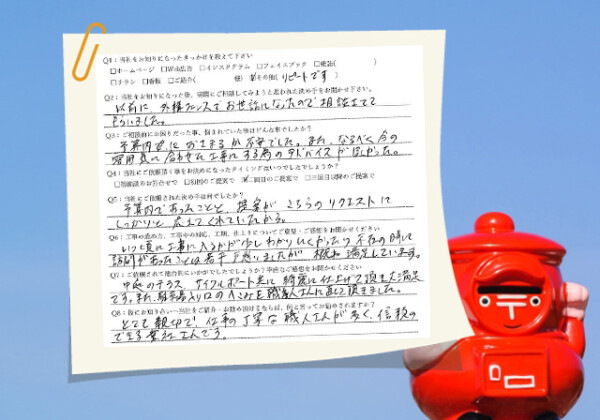 Q1：当社をお知りになったきっかけを教えて下さい
□ホームページ □Web広告 □インスタグラム □フェイスブック □雑誌( )
□チラシ □看板 □ご紹介( 様) ☑その他( リピートです )
Q2：当社をお知りになった後、実際にご相談してみようと思われた決め手をお聞かせ下さい。
以前に、外構フェンスでお世話になったので相談させて
もらいました。
Q3：ご相談前にお困りだった事、悩まれていた事はどんな事でしたか?
予算内でおさまるか不安でした。また、なるべく今の
雰囲気に合わせた工事にする為のアドバイスが欲しかった。
Q4：当社にご依頼頂く事をお決めになったタイミングはいつでしたでしょうか?
□初回のお打合せで □初回のご提案で ☑二回目のご提案で □三回目以降のご提案で
Q5：当社にご依頼された決め手は何でしたか?
予算内であったことと、提案がこちらのリクエストに
しっかりと応えてくれていたから。
Q6：工事の進め方、工事中の対応、工期、仕上りについてご意見・ご感想をお聞かせください
いつ頃に工事に入るかが少しわかりにくかったり不在の時に
訪問があったことは若干戸惑いましたが 概ね満足しています。
Q7：ご依頼されて総合的にいかがでしたでしょうか?率直なご感想をお聞かせください
中庭のテラス、サイクルポート共に綺麗に仕上げて頂き大満足
です。また、駐車場入り口のへこみを職人さんに直して頂きました。
とても親切で、仕事の丁寧な職人さんが多く、信頼の
できる業社さんです。
〒